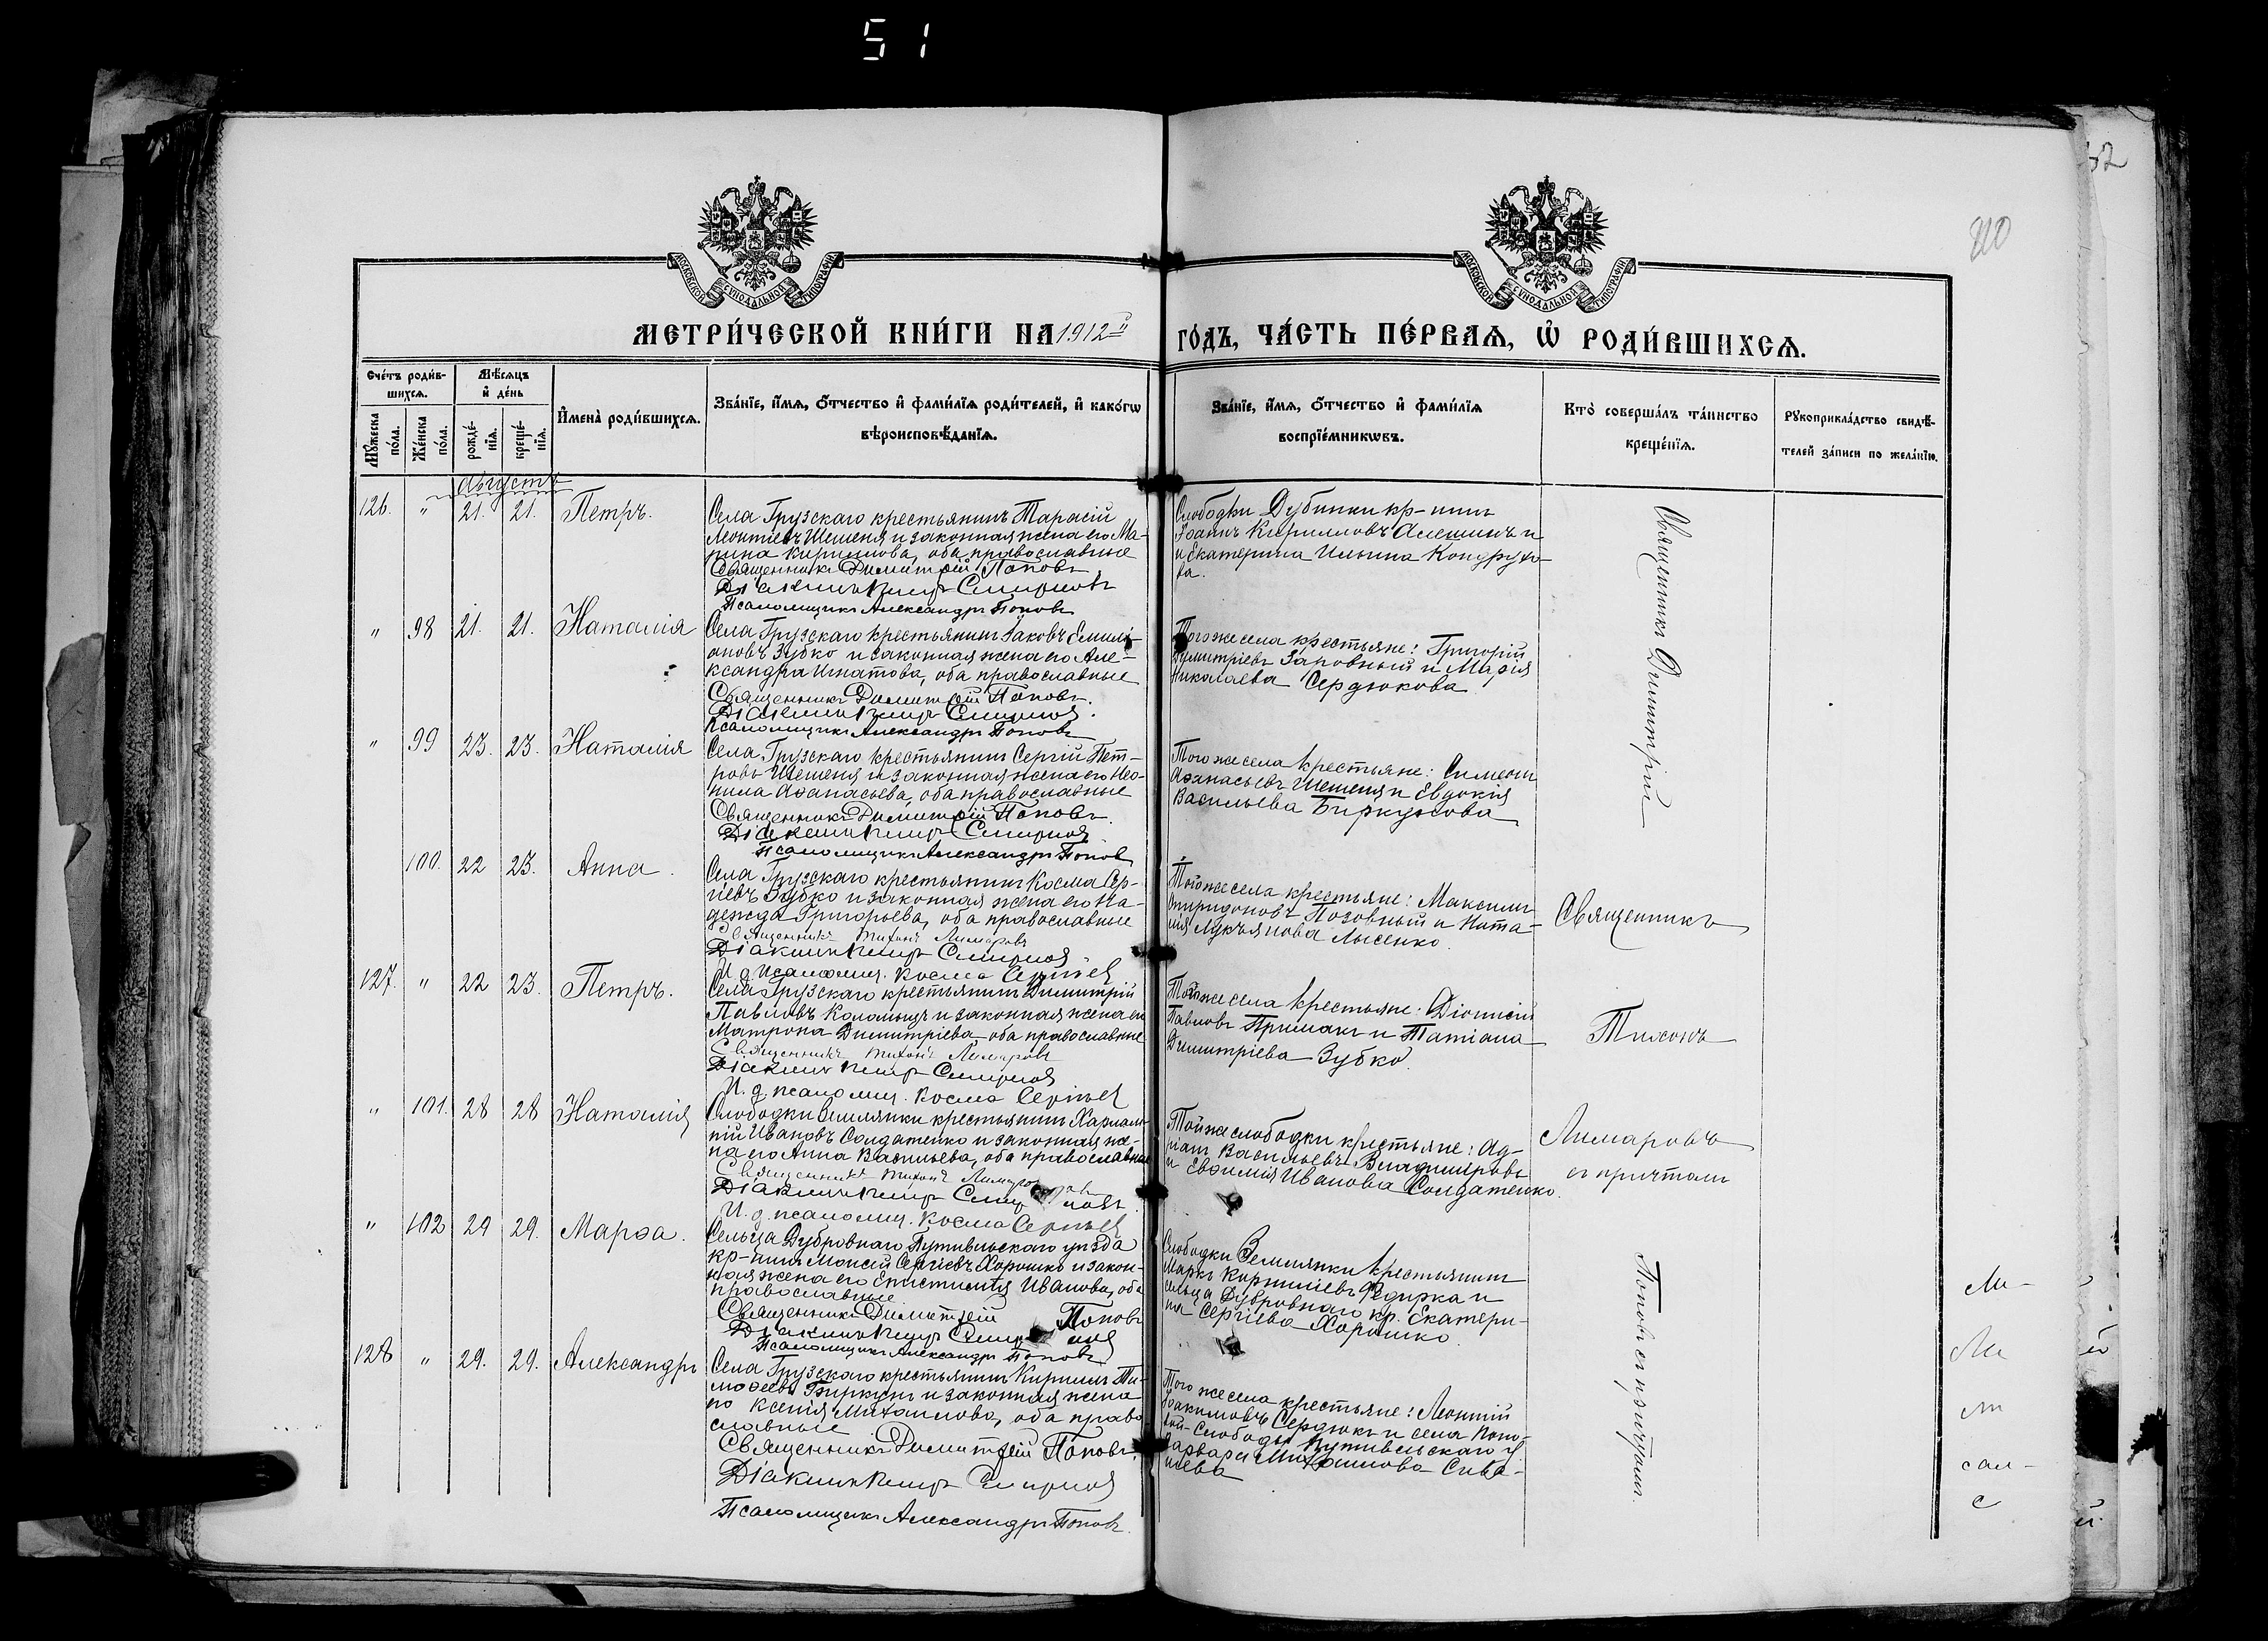 51
52
МОСКОВСКОЙ СѴНОДАЛЬНОЙ ТИПОГРАФІИ
МОСКОВСКОЙ СѴНОДАЛЬНОЙ ТИПОГРАФІИ
МЕТРИ́ЧЕСКОЙ КНИ́ГИ НА 1912й ГО́ДЪ, ЧА́СТЬ ПЕ́РВАѦ, Ѡ҆ РОДИ́ВШИХСѦ.
Сче́тъ роди́в-
шихсѧ.
Мꙋ́жеска по́ла.
Же́нска по́ла.
Мѣ́сѧцъ
и҆ де́нь
рожде́-
нїѧ.
креще́-
нїѧ.
И҆мена̀ роди́вшихсѧ.
Зва́нїе, и҆́мѧ, ѻ҆́тчество и҆ фами́лїѧ роди́телей, и҆ како́гѡ
вѣроисповѣ́данїѧ.
Зва́нїе, и҆́мѧ, ѻ҆́тчество и҆ фами́лїѧ
воспрїе́мникѡвъ.
Кто̀ соверша́лъ та́инство
креще́нїѧ.
Рꙋкоприкла́дство свидѣ́-
телей за́писи по жела́нїю.
Августъ
126. " 21. 21. Петръ.
Села Грузскаго крестьянинъ Тарасій
Леонтіевъ Шеменя и законная жена его Ма-
рина Кириллова, оба православные
Священникъ Димитрій Поповъ
Діаконъ Петръ Смирновъ
Псаломщикъ Александръ Поповъ
Слободки Дубинки кр-нинъ
Іоаннъ Кирилловъ Алешинъ и
Екатерина Ильина Кондрухо-
ва.
Священникъ Димитрій
" 98 21. 21. Наталія
Села Грузскаго крестьянинъ Іаковъ Емилі-
ановъ Зубко и законная жена его Але-
ксандра Игнатова, оба православные
Священникъ Димитрій Поповъ.
Діаконъ Петръ Смирновъ.
Псаломщикъ Александръ Поповъ
Того же села крестьяне: Григорій
Димитріевъ Заровный и Марія
Николаева Сердюкова
" 99 23. 23. Наталія
Села Грузскаго крестьянинъ Сергій Пет-
ровъ Шеменя и законная жена его Нео-
нила Аѳанасьева, оба православные
Священникъ Димитрій Поповъ.
Діаконъ Петръ Смирновъ
Псаломщикъ Александръ Поповъ
Того же села крестьяне: Симеонъ
Аѳанасьевъ Шеменя и Евдокія
Васильева Биркусова
100. 22 23. Анна.
Села Грузскаго крестьянинъ Косма Сер-
гіевъ Зубко и законная жена его На-
дежда Григорьева, оба православные
Священникъ Тихонъ Лимаровъ
Діаконъ Петръ Смирновъ
И. д. псаломщ. Косма Сергѣев
Того же села крестьяне: Максимъ
Спиридоновъ Позовный и Ната-
лія Лукъянова Лысенко.
Священникъ
127. " 22 23. Петръ.
Села Грузскаго крестьянинъ Димитрій
Павловъ Коломыцъ и законная жена его
Матрона Димитріева, оба православные
Священникъ Тихонъ Лимаровъ
Діаконъ Петръ Смирновъ
И. д. псаломщ. Косма Сергѣев
Того же села крестьяне: Діонисій
Павловъ Примакъ и Татіана
Димитріева Зубко.
Тихонъ
" 101. 28 28 Наталія
Слободки Землянки крестьянинъ Харлам-
пій Ивановъ Солдатенко и законная же-
на его Анна Васильева, оба православные
Священникъ Тихонъ Лимаровъ
Діаконъ Петръ Смирновъ.
И. д. псаломщ. Косма Сергѣев
Той же слободки крестьяне: Ад-
ріанъ Васильевъ Владимировъ
и Евѳимія Иванова Солдатенко.
Лимаровъ
съ причтомъ
" 102 29 29. Марѳа.
Сельца Дубровнаго Путивльскаго уѣзда
кр-нинъ Моисей Сергіевъ Хорошко и закон-
ная жена его Епистимія Иванова, оба
православные
Священникъ Димитрій Поповъ
Діаконъ Петръ Смирновъ
Псаломщикъ Александръ Поповъ
Слободки Землянки крестьянинъ
Маркъ Корниліевъ Федирка и
сельца Дубровнаго кр. Екатери-
на Сергіева Хорошко
Поповъ съ причтомъ.
128 " 29. 29. Александръ
Села Грузскаго крестьянинъ Кириллъ Ти-
моѳеевъ Биркунъ и законная жена
его Ксенія Михаилова, оба право-
славные
Священникъ Димитрій Поповъ.
Діаконъ Петръ Смирновъ
Псаломщикъ Александръ Поповъ.
Того же села крестьяне: Леонтій
Іоакимовъ Сердюкъ и села Ново-
вой-Слободы Путивльскаго у.
Варвара Михаилова Сива-